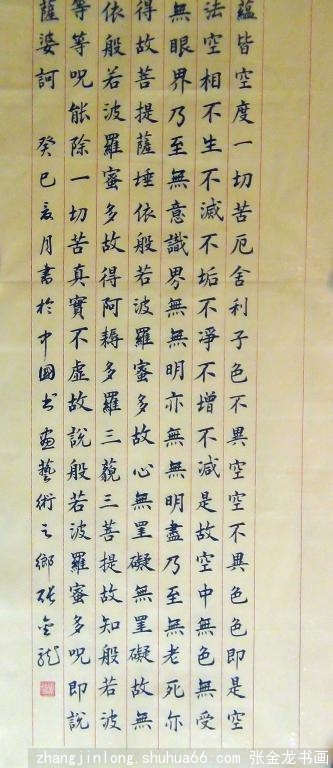 蘊皆空度一切苦厄舍利子色不異空空不異色色即是空
法空相不生不滅不垢不淨不增不減是故空中無色無受
無眼界乃至無意識界無無明亦無無明盡乃至無老死亦
得故菩提薩埵依般若波羅蜜多故心無罣礙無罣礙故無
依般若波羅蜜多故得阿耨多羅三藐三菩提故知般若波
等等呪能除一切苦真實不虛故說般若波羅蜜多呪即說
薩婆訶 癸巳亥月書於中國书畫藝術之鄉張金龍
zhangjinlong.shuhua66.com 张金龙书画